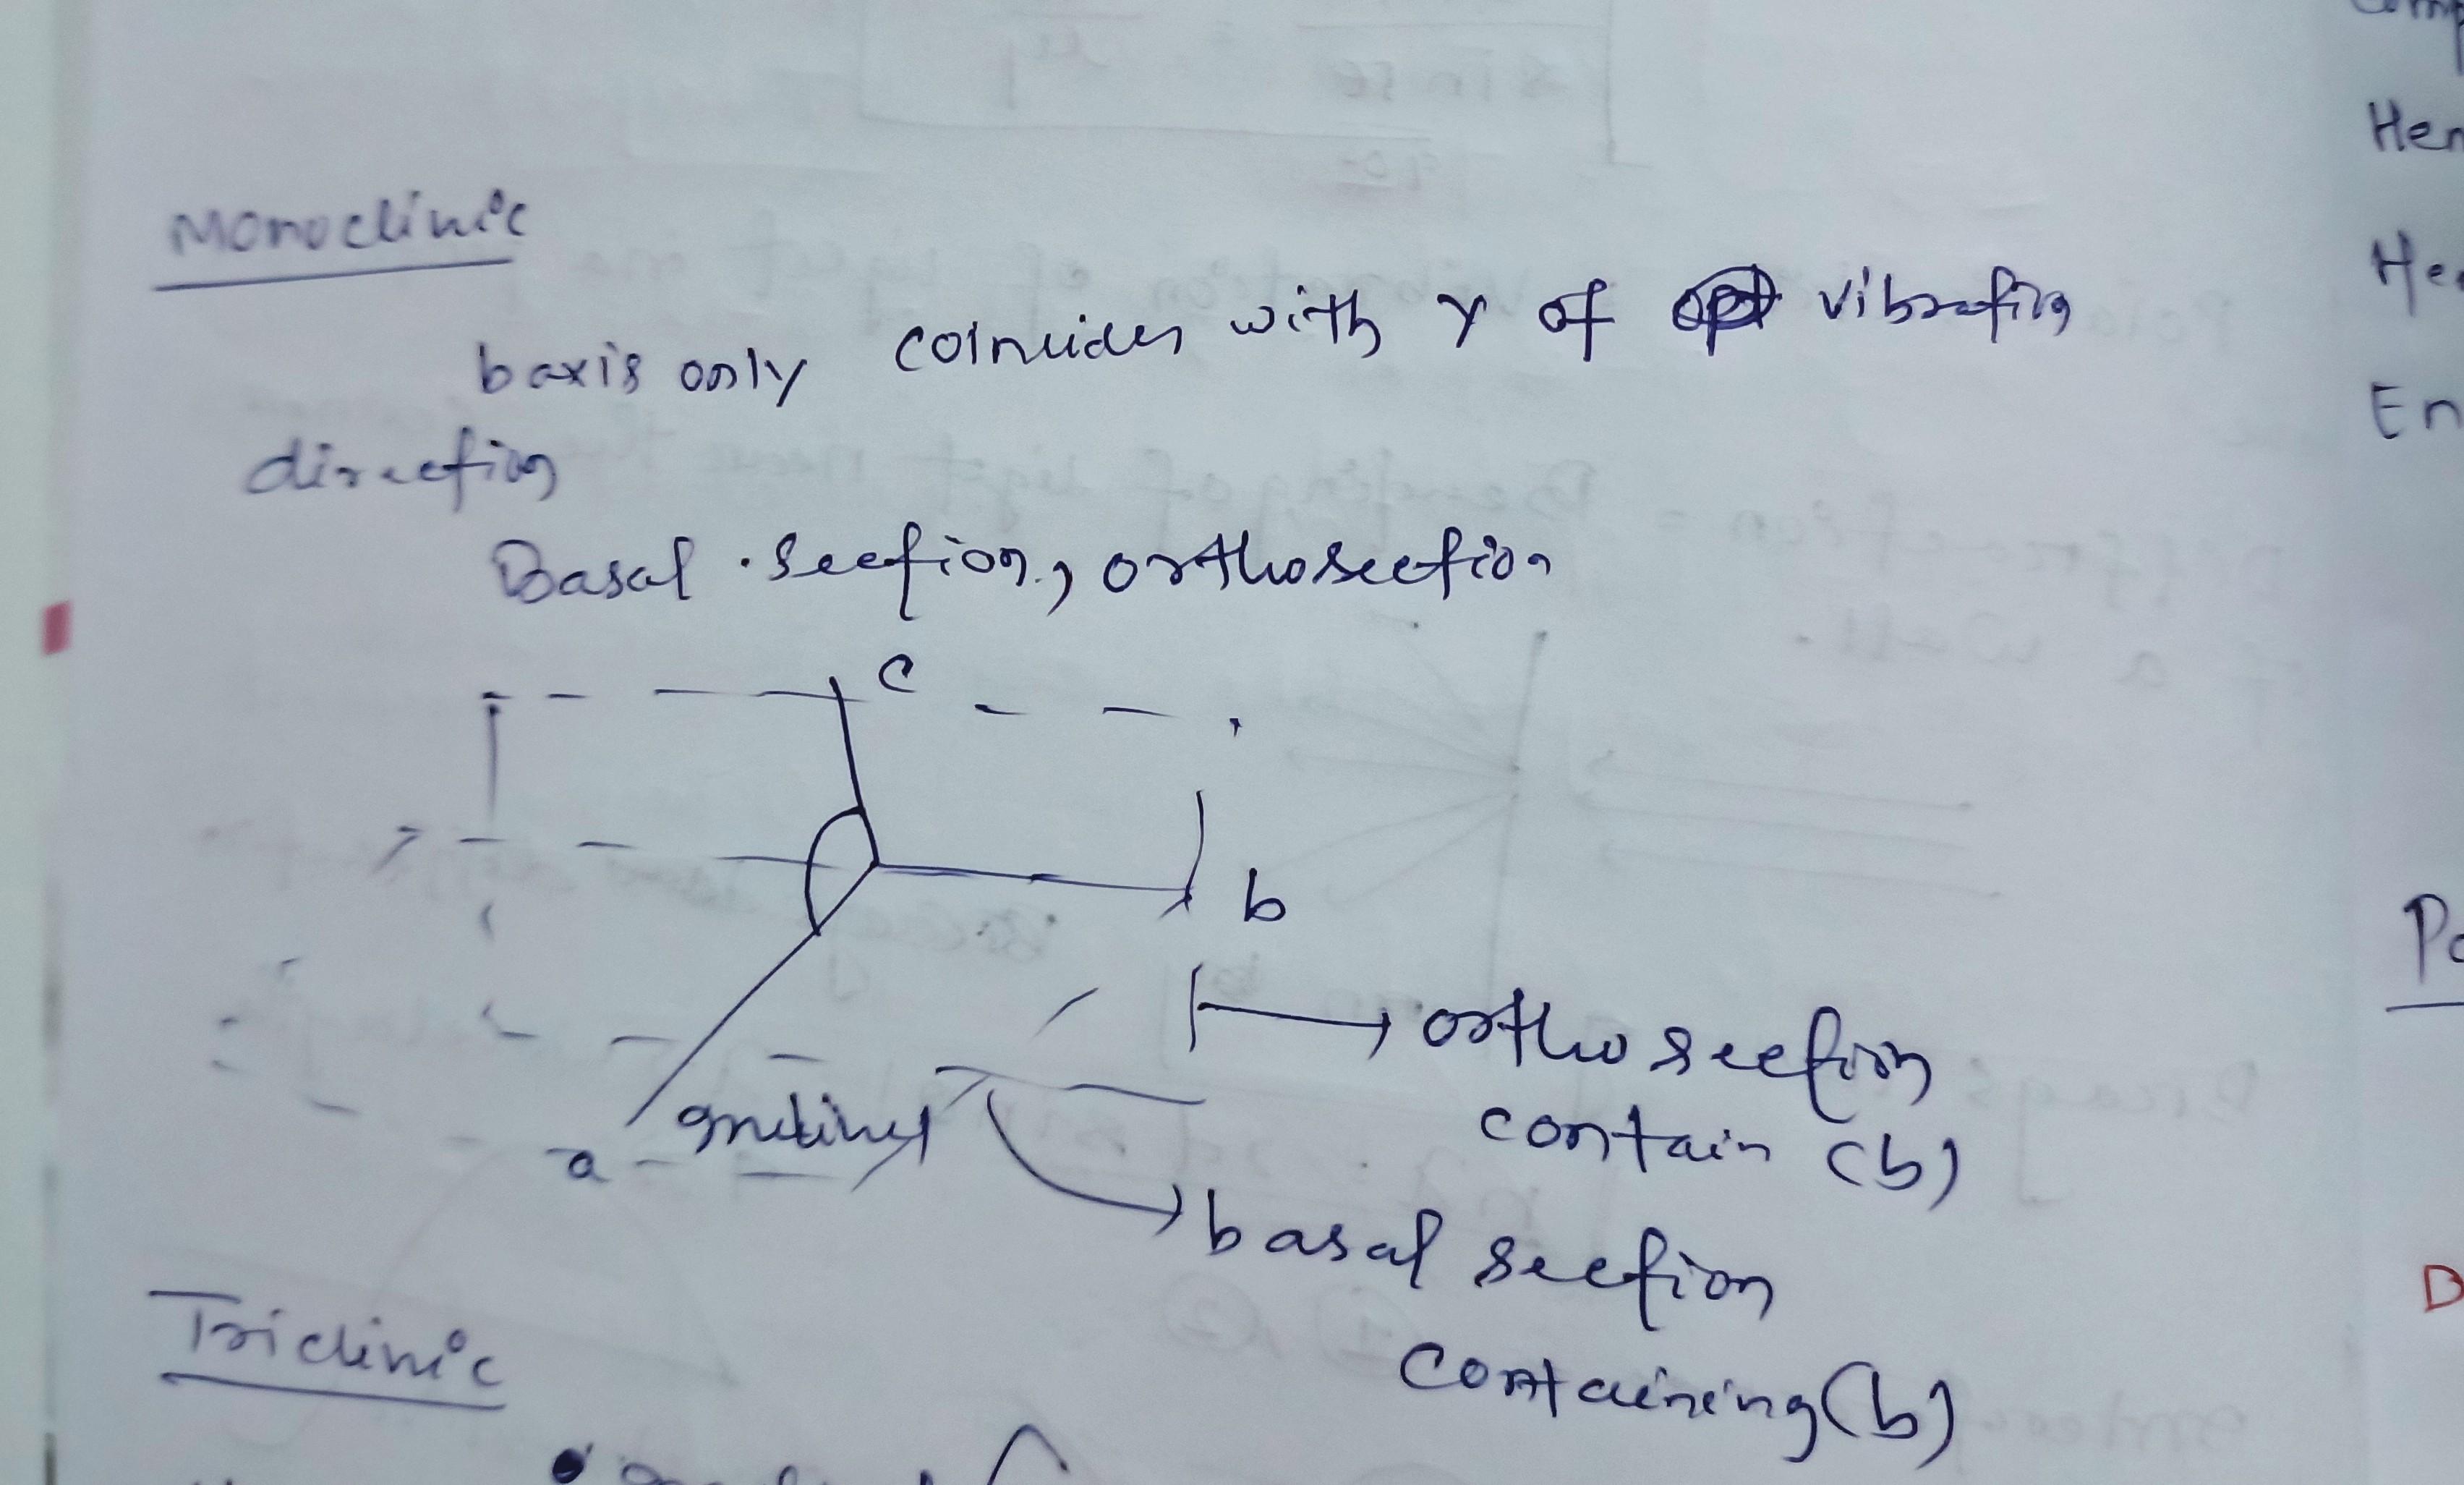 Comp
Hen
He
En
Monoclinic
b axis only coincides with Y of vibration
direction
Basal section, orthosection
c
b
ortho section
contain (b)
a
inclined
basal section
containing (b)
Triclinic
Po
D